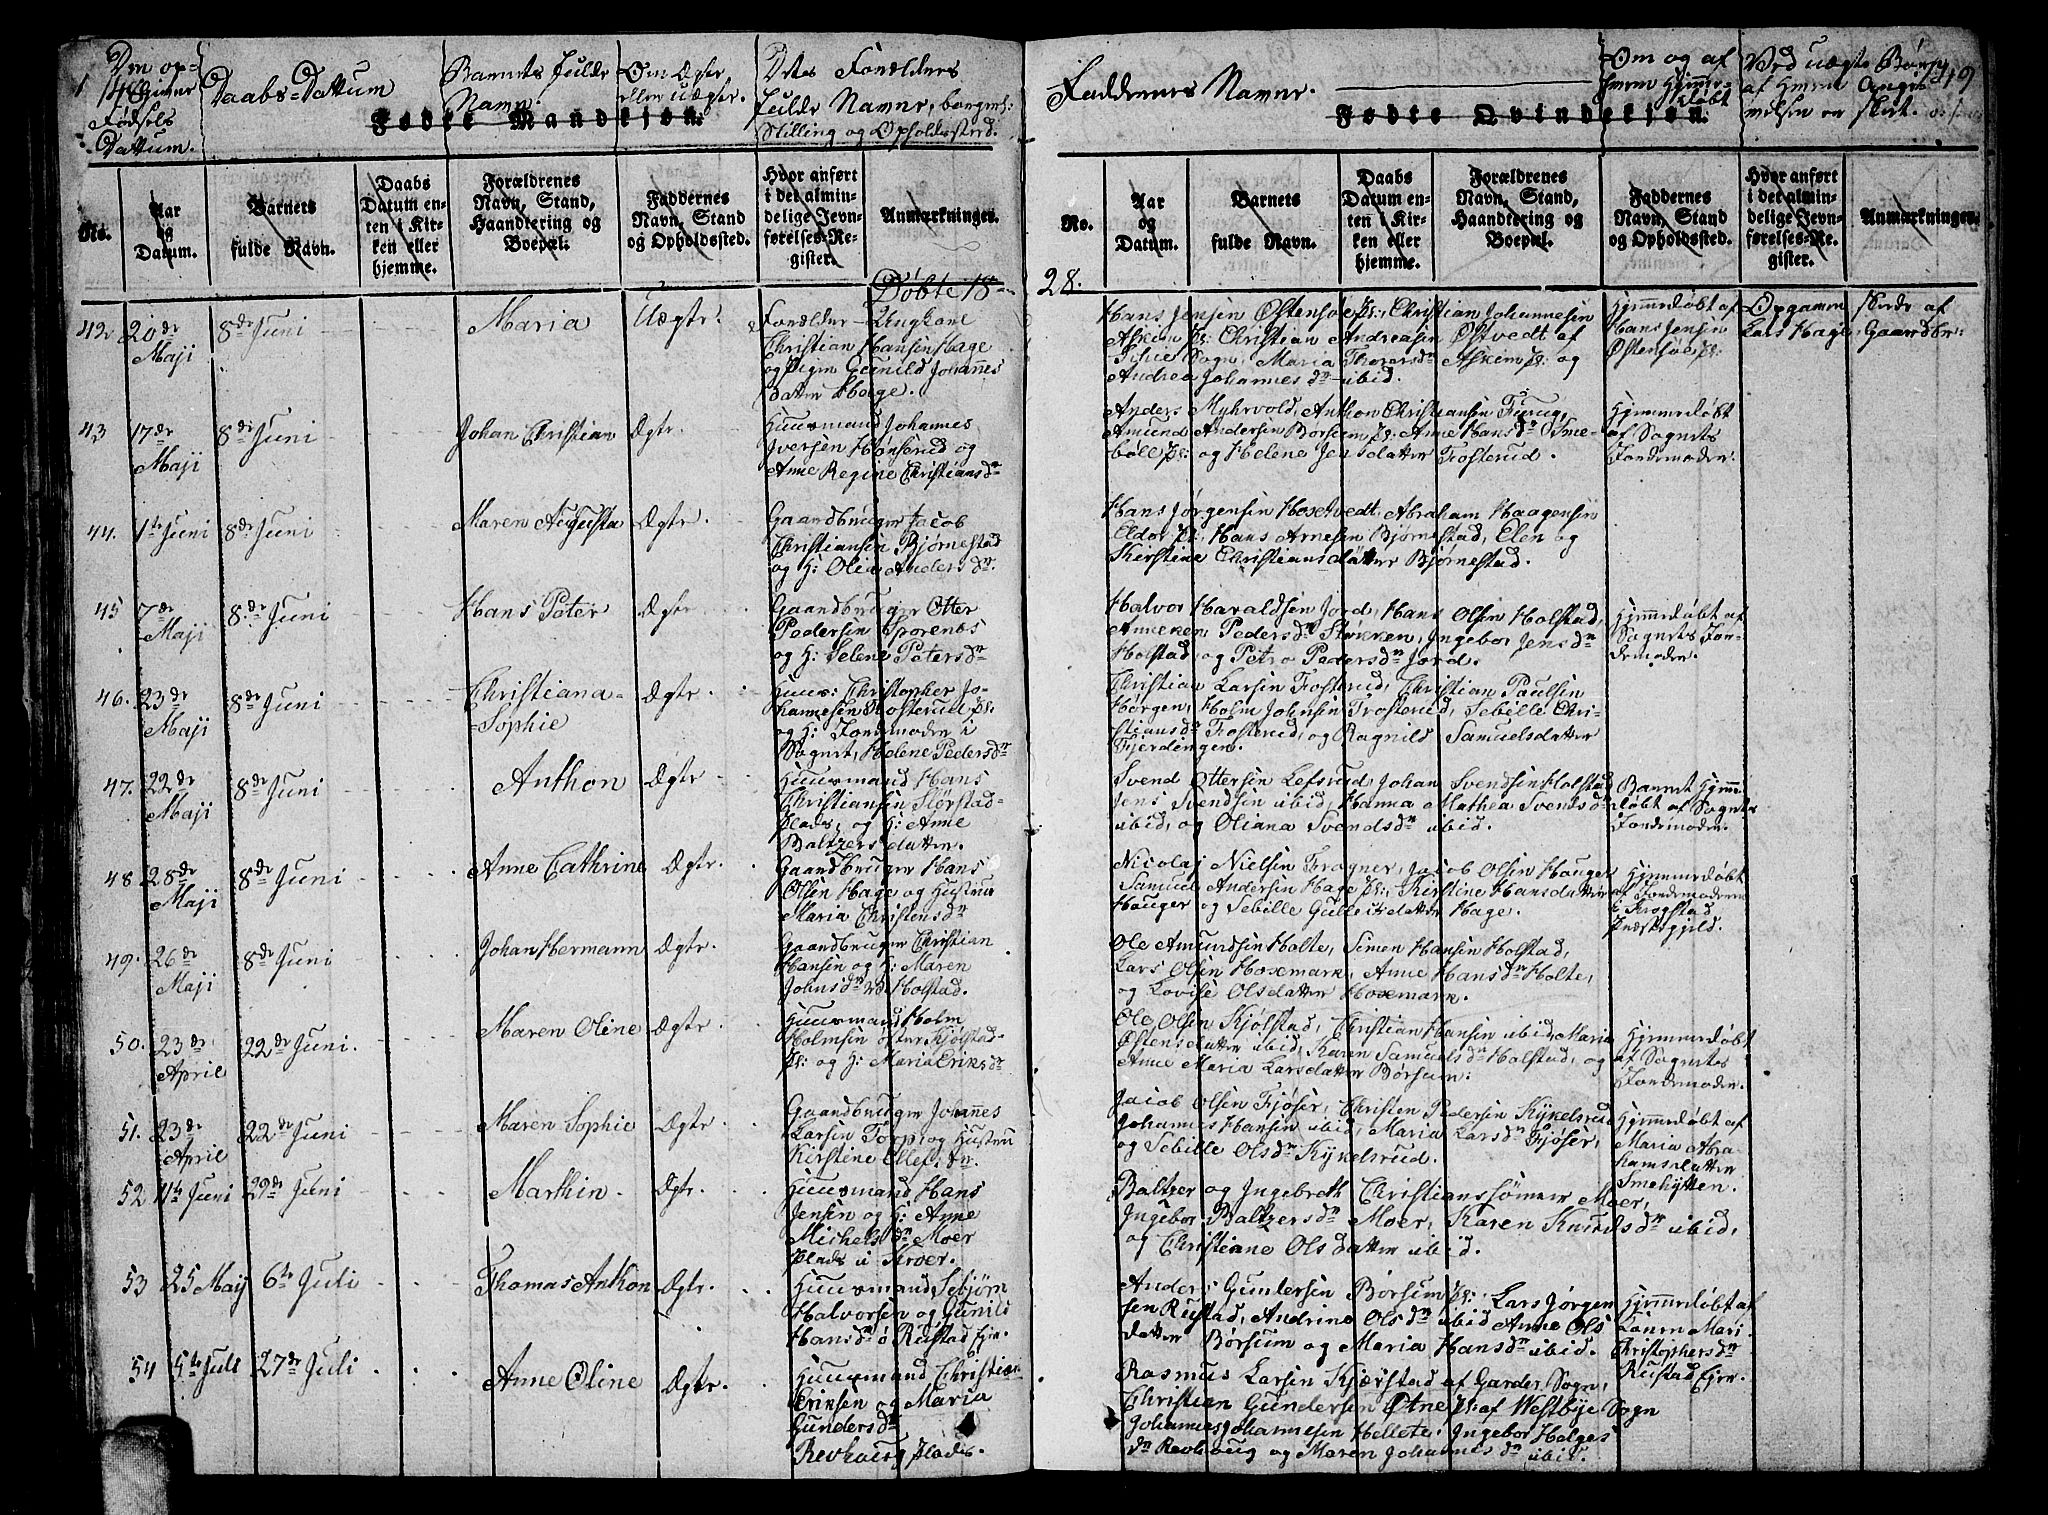 Den op-
givne
Fødsels
Dattum.
Daabs-Dattum
Barnets fulde
Navn.
Om Ægte,
eller uægte.
Dets Forældres
fulde Navne, borgerl:
Stilling og Opholdssted.
Fødte Mandkjøn.
No.
Aar
og
Datum.
Barnets
fulde Navn.
Daabs
Datum en-
ten i Kir-
ken eller
hjemme.
Forældrenes
Navn, Stand,
Haandtering og
Boepæl.
Faddernes
Navn, Stand
og Opholdssted.
Hvor anført
i det almin-
delige Jevn-
førelses-Re-
gister.
Anmærkninger.
Døbte 18
42 20de Maji 8de Juni Maria Uægte.
Forældre Ungkarl
Christian Hansen Hage
og Pigen Gunild Johannes
datter Hage.
43 17de Maji 8de Juni Johan Christian Ægte
Huusmand Johannes
Iversen Hønserud og
Anne Regine Christiansdr
44. 1te Juni 8de Juni Maren Augusta Ægte.
Gaardbruger Jacob
Christiansen Bjørnestad
og H: Olia Andersdr.
45 7de Maji 8de Juni Hans Peter Ægte
Gaardbruger Otter
Pedersen Sporenes
og H: Selene Petersdr
46. 23de Maji 8de Juni Christiana-
Sophie Ægte.
Huus: Christopher Jo-
hannesen Trosterud pl:
og H: Jordemoder i
Sognet, Helene Pedersdr
47. 22de Maji 8de Juni Anthon Ægte
Huusmand Hans
Christiansen Størstad-
plads, og H: Anne
Baltzersdatter.
48 28de Maji 8de Juni Anne Cathrine Ægte.
Gaardbruger Hans
Olsen Hage og Hustru
Maria Christensdr
49. 26de Maji 8de Juni Johan Hermann Ægte.
Gaardbruger Christian
Hansen og H: Maren
Johnsdr Holstad.
50. 23de April 22de Juni. Maren Oline Ægte
Huusmand Holm
Holmsen øster Kjølstad-
pl: og H: Maria Eriksdr
51. 23de April 22de Juni Maren Sophie Ægte.
Gaardbruger Johannes
Larsen Torp, og Hustru
Kirstine Ollefsdr.
52 11te Juni 29de Juni Marthin. Ægte.
Huusmand Hans
Jensen og H: Anne
Michelsdr Moer
plads i Kroer.
53 25 Maji 6te Juli Thomas Anthon Ægte.
Huusmand Sebjørn
Halvorsen og Gunild
Hansdr: ø Rustad Ejer.
54 5te Juli 27de Juli Anne Oline Ægte.
Huusmand Christian
Eriksen og Maria
Gundersdr
Revhaug plads.
Faddernes Navne.
Om og af
hvem hjemme-
døbt
Ved uægte Børn
af hvem Angi-
velsen er skeet.
149
Fødte Qvindekjøn.
No.
Aar
og
Datum.
Barnets
fulde Navn.
Daabs
Datum en-
ten i Kir-
ken eller
hjemme.
Forældrenes
Navn, Stand,
Haandtering og
Boepæl.
Faddernes
Navn, Stand
og Opholdssted.
Hvor anført
i det almin-
delige Jevn-
førelses-Re-
gister.
Anmærkninger.
28.
Hans Jensen Østensøe pl: Christian Johannesen
Askim pl: Christian Andreasen Østvedt af
Sogn, Maria Thoresdr Askim pl: og
Andrea Johannesdr ibid.
Hjemmedøbt af
Hans Jensen
Østensøe pl:
Opgaven skede af
Lars Hage, Gaardbr:
Anders Myhrvold, Anthon Christiansen Furug,
Amund Andersen Børsum pl: Anne Hansdr Sme-
bøll pl: og Helene Jensdatter Trosterud.
Hjemmedøbt
af Sognets
Jordemoder.
Hans Jørgensen Hoxtvedt, Abraham Haagensen
Eldor pl: Hans Arnesen Bjørnestad, Elen og
Kirstine Christiansdatter Bjørnestad.
Halvor Haraldsen Jord, Hans Olsen Holstad,
Anneken Pedersdr Støkken, Ingebor Jensdr
Holstad, og Petro Pedersdr Jord.
Hjemmedøbt af
Sognets Jor-
demoder.
Christian Larsen Trosterud, Christian Paulsen
Hørgen, Holm Johnsen Trosterud, Sebille Chri-
stiansdr Trosterud, og Ragnild Samuelsdatter
Fjerdingen.
Svend Ottersen Lefsrud, Johan Svendsen Holstad
Jens Svendsen ibid, Hanna Mathea Svendsdr
ibid, og Oliana Svendsdr ibid.
Barnet hjemme-
døbt af Sognets
Jordemoder.
Nicolaj Nielsen Frogner, Jacob Olsen Hauger
Samuel Andersen Hage pl:, Kirstine Hansdatter
Hauger og Sebille Gulliksdatter Hage.
Hjemmedøbt
af Jordemoderen
i Krogstad
Præstegjeld.
Ole Amundsen Holte, Simen Hansen Holstad,
Lars Olsen Hoxmark, Anne Hansdr Holte,
og Lovise Olsdatter Hoxmark.
Ole Olsen Kjølstad, Christian Hansen ibid, Maria
Østensdatter ibid, Karen Samuelsdr Holstad, og
Anne Maria Larsdatter Børsum.
Hjemmedøbt
af Sognets
Jordemoder.
Jacob Olsen Fjøser, Christen Pedersen Kykelsrud
Johannes Hansen ibid, Maria Larsdr Fjøser,
og Sebille Olsdr Kykelsrud.
Hjemmedøbt af
Maria Abra-
hamsdatter
Smehytten.
Baltzer og Ingebreth Christianssønner Moer,
Ingebor Baltzersdr Moer, Karen Knudsdr ibid,
og Christiane Olsdatter ibid.
Anders Gundersen Børsum pl: Lars Jørgen
sen Rustad, Andrine Olsdr ibid Anne Ols
datter Børsum og Maria Hansdr ibid.
Hjemmedøbt af
Karen Mari
Christophersdr
Rustad Ejer.
Rasmus Larsen Kjærstad af Garder Sogn,
Christian Gundersen Otne pl: af Westbye Sogn
Johannes Johannesen Hellete, Ingebor Holges
dr Revhaug og Maren Johannesdr ibid.